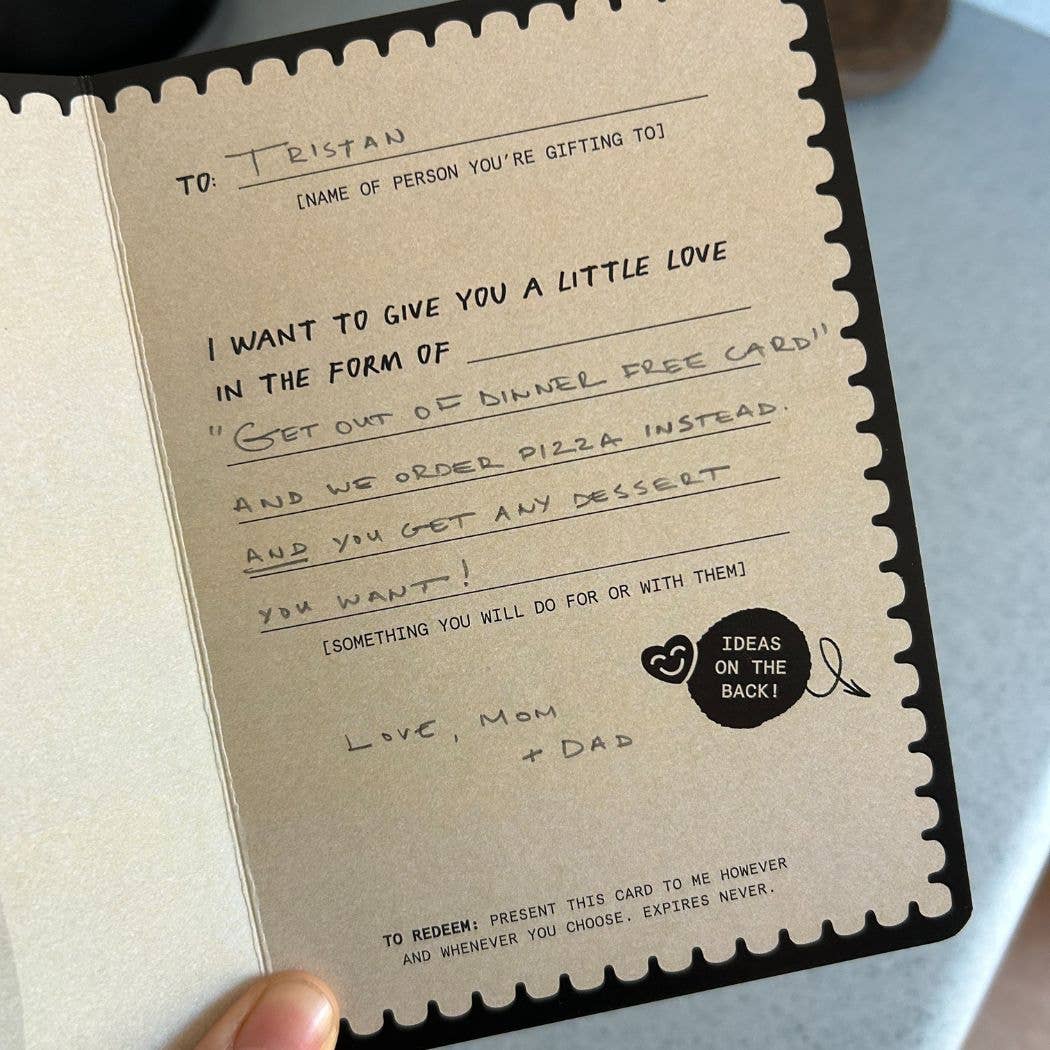 TO: TRISTAN
[NAME OF PERSON YOU'RE GIFTING TO]
I WANT TO GIVE YOU A LITTLE LOVE
IN THE FORM OF
"GET OUT OF DINNER FREE CARD"
AND WE ORDER PIZZA INSTEAD.
AND YOU GET ANY DESSERT
YOU WANT!
[SOMETHING YOU WILL DO FOR OR WITH THEM]
IDEAS
ON THE
BACK!
LOVE, MOM
+ DAD
TO REDEEM: PRESENT THIS CARD TO ME HOWEVER
AND WHENEVER YOU CHOOSE. EXPIRES NEVER.